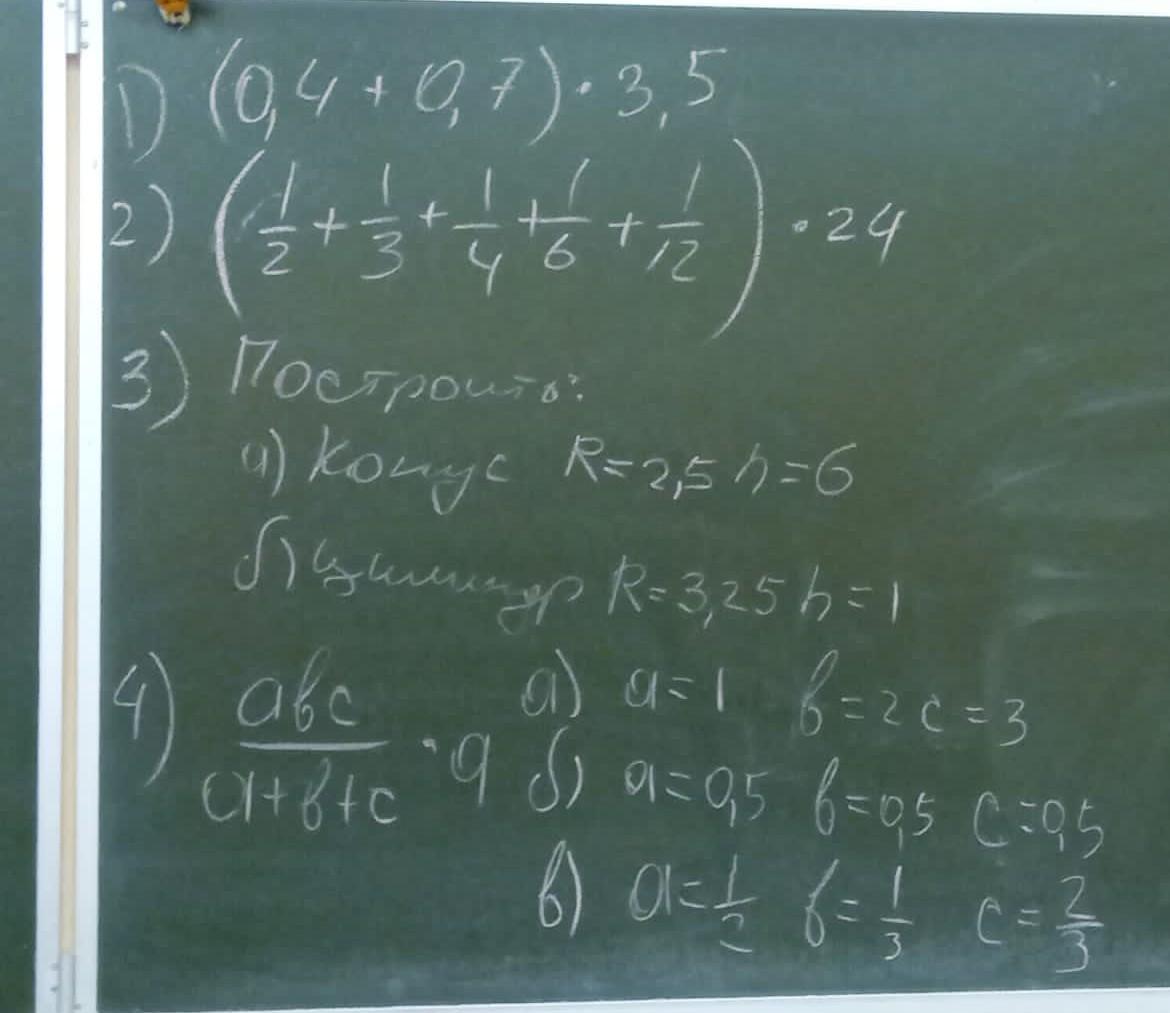 1) (0,4 + 0,7) · 3,5
2) (1/2 + 1/3 + 1/4 + 1/6 + 1/12) · 24
3) Построить:
а) Конус R=2,5 h=6
б) Цилиндр R=3,25 h=1
4) abc/(a+b+c) · 9
а) a=1 b=2 c=3
б) a=0,5 b=0,5 c=0,5
в) a=1/2 b=1/3 c=2/3